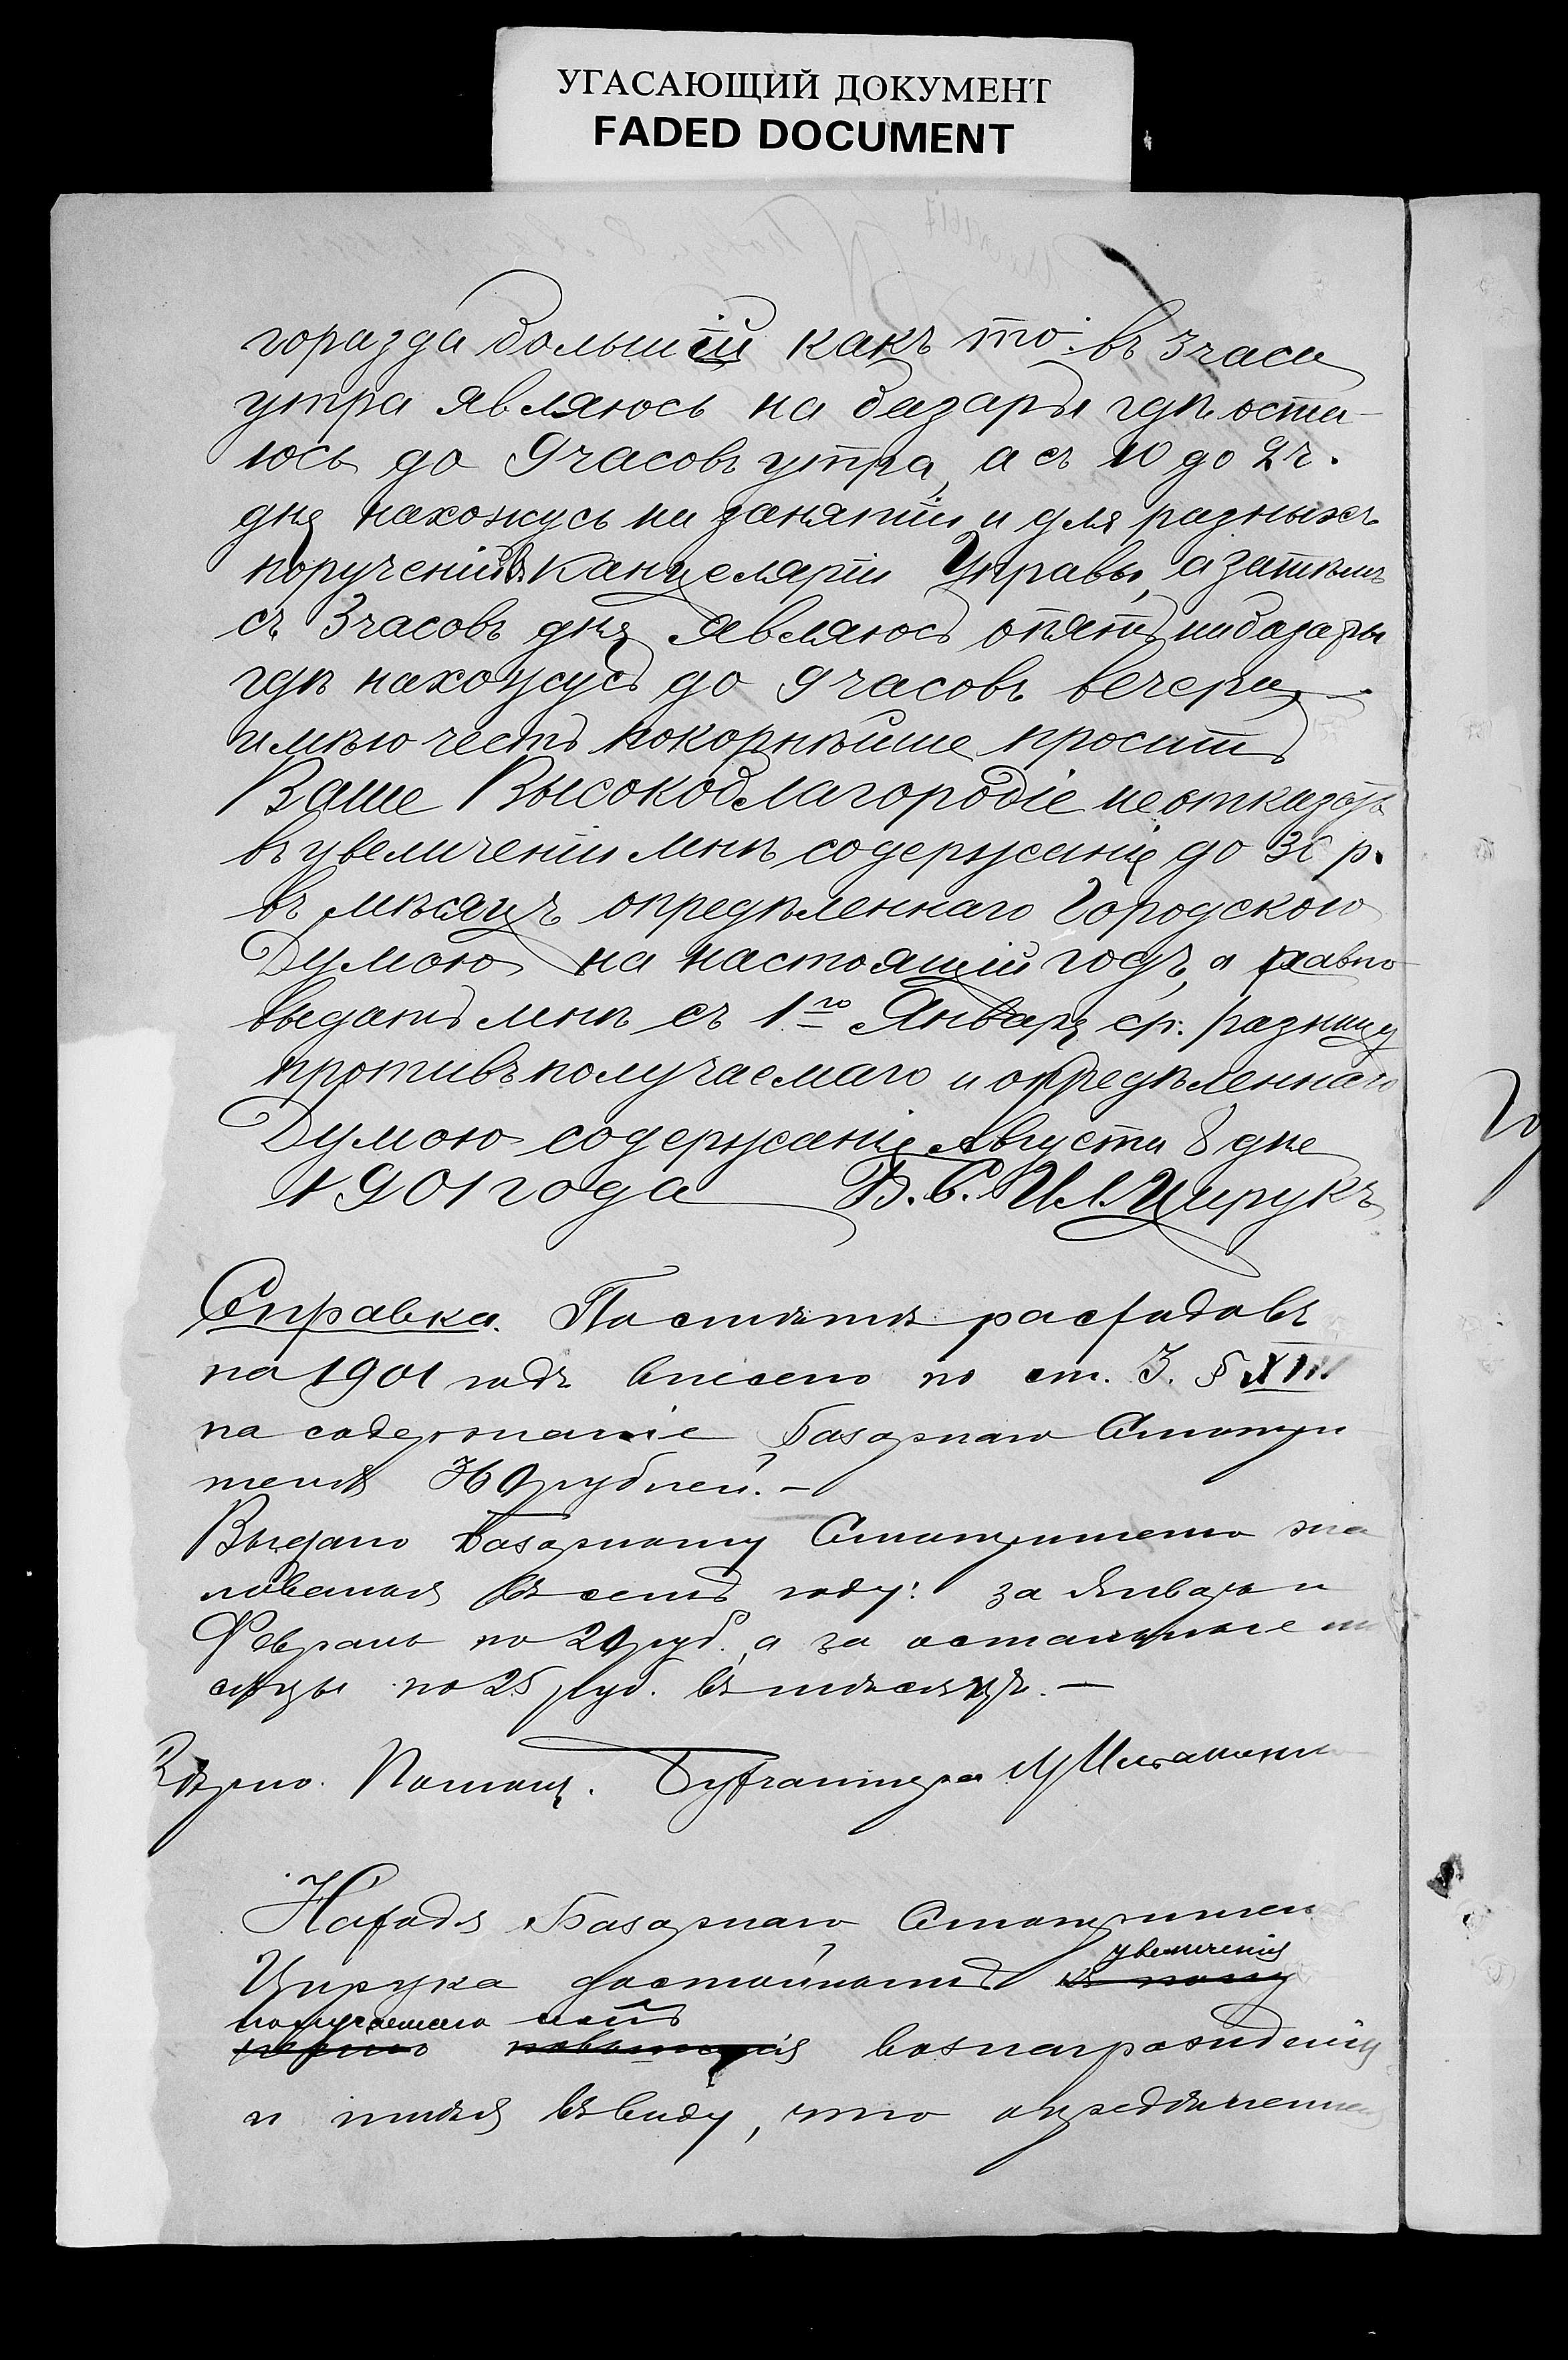 УГАСАЮЩИЙ ДОКУМЕНТ
FADED DOCUMENT
горазда большій какъ то: въ 3 часа
утра являюсь на базары гдѣ оста-
юсь до 9 часовъ утра, а съ 10 до 2 ч.
дня нахожусь на занятіи и для разныхъ
порученій въ Канцеляріи Управы, а затѣмъ
съ 3 часовъ дня являюсь опять на базары
гдѣ нахожусь до 9 часовъ вечера, —
имѣю честь покорнѣйше просить
Ваше Высокоблагородіе не отказать
въ увеличеніи мнѣ содержанія до 30 р.
въ мѣсяцъ опредѣленнаго Городскою
Думою на настоящій годъ, а равно
выдать мнѣ съ 1го Января с.г. разницу
противъ получаемаго и опредѣленнаго
Думою содержанія Августа 8 дня
1901 года Б. С. И. Цирукъ
Справка. По смѣтѣ расходовъ
на 1901 годъ внесено по ст. 3. §
на содержаніе Базарнаго Смотри
теля 360 рублей. —
Выдано Базарному Смотрителю жа
лованья въ семъ году: за Январь и
Февраль по 20 руб., а за остальные мѣ
сяцы по 25 руб. въ мѣсяцъ. —
Вѣрно. Помощ. Бухгалтера
Находя Базарнаго Смотрителя
увеличенія
Цирука достойнымъ къ тому
получаемаго имъ
вознагражденія
и имѣя въ виду, что опредѣленная